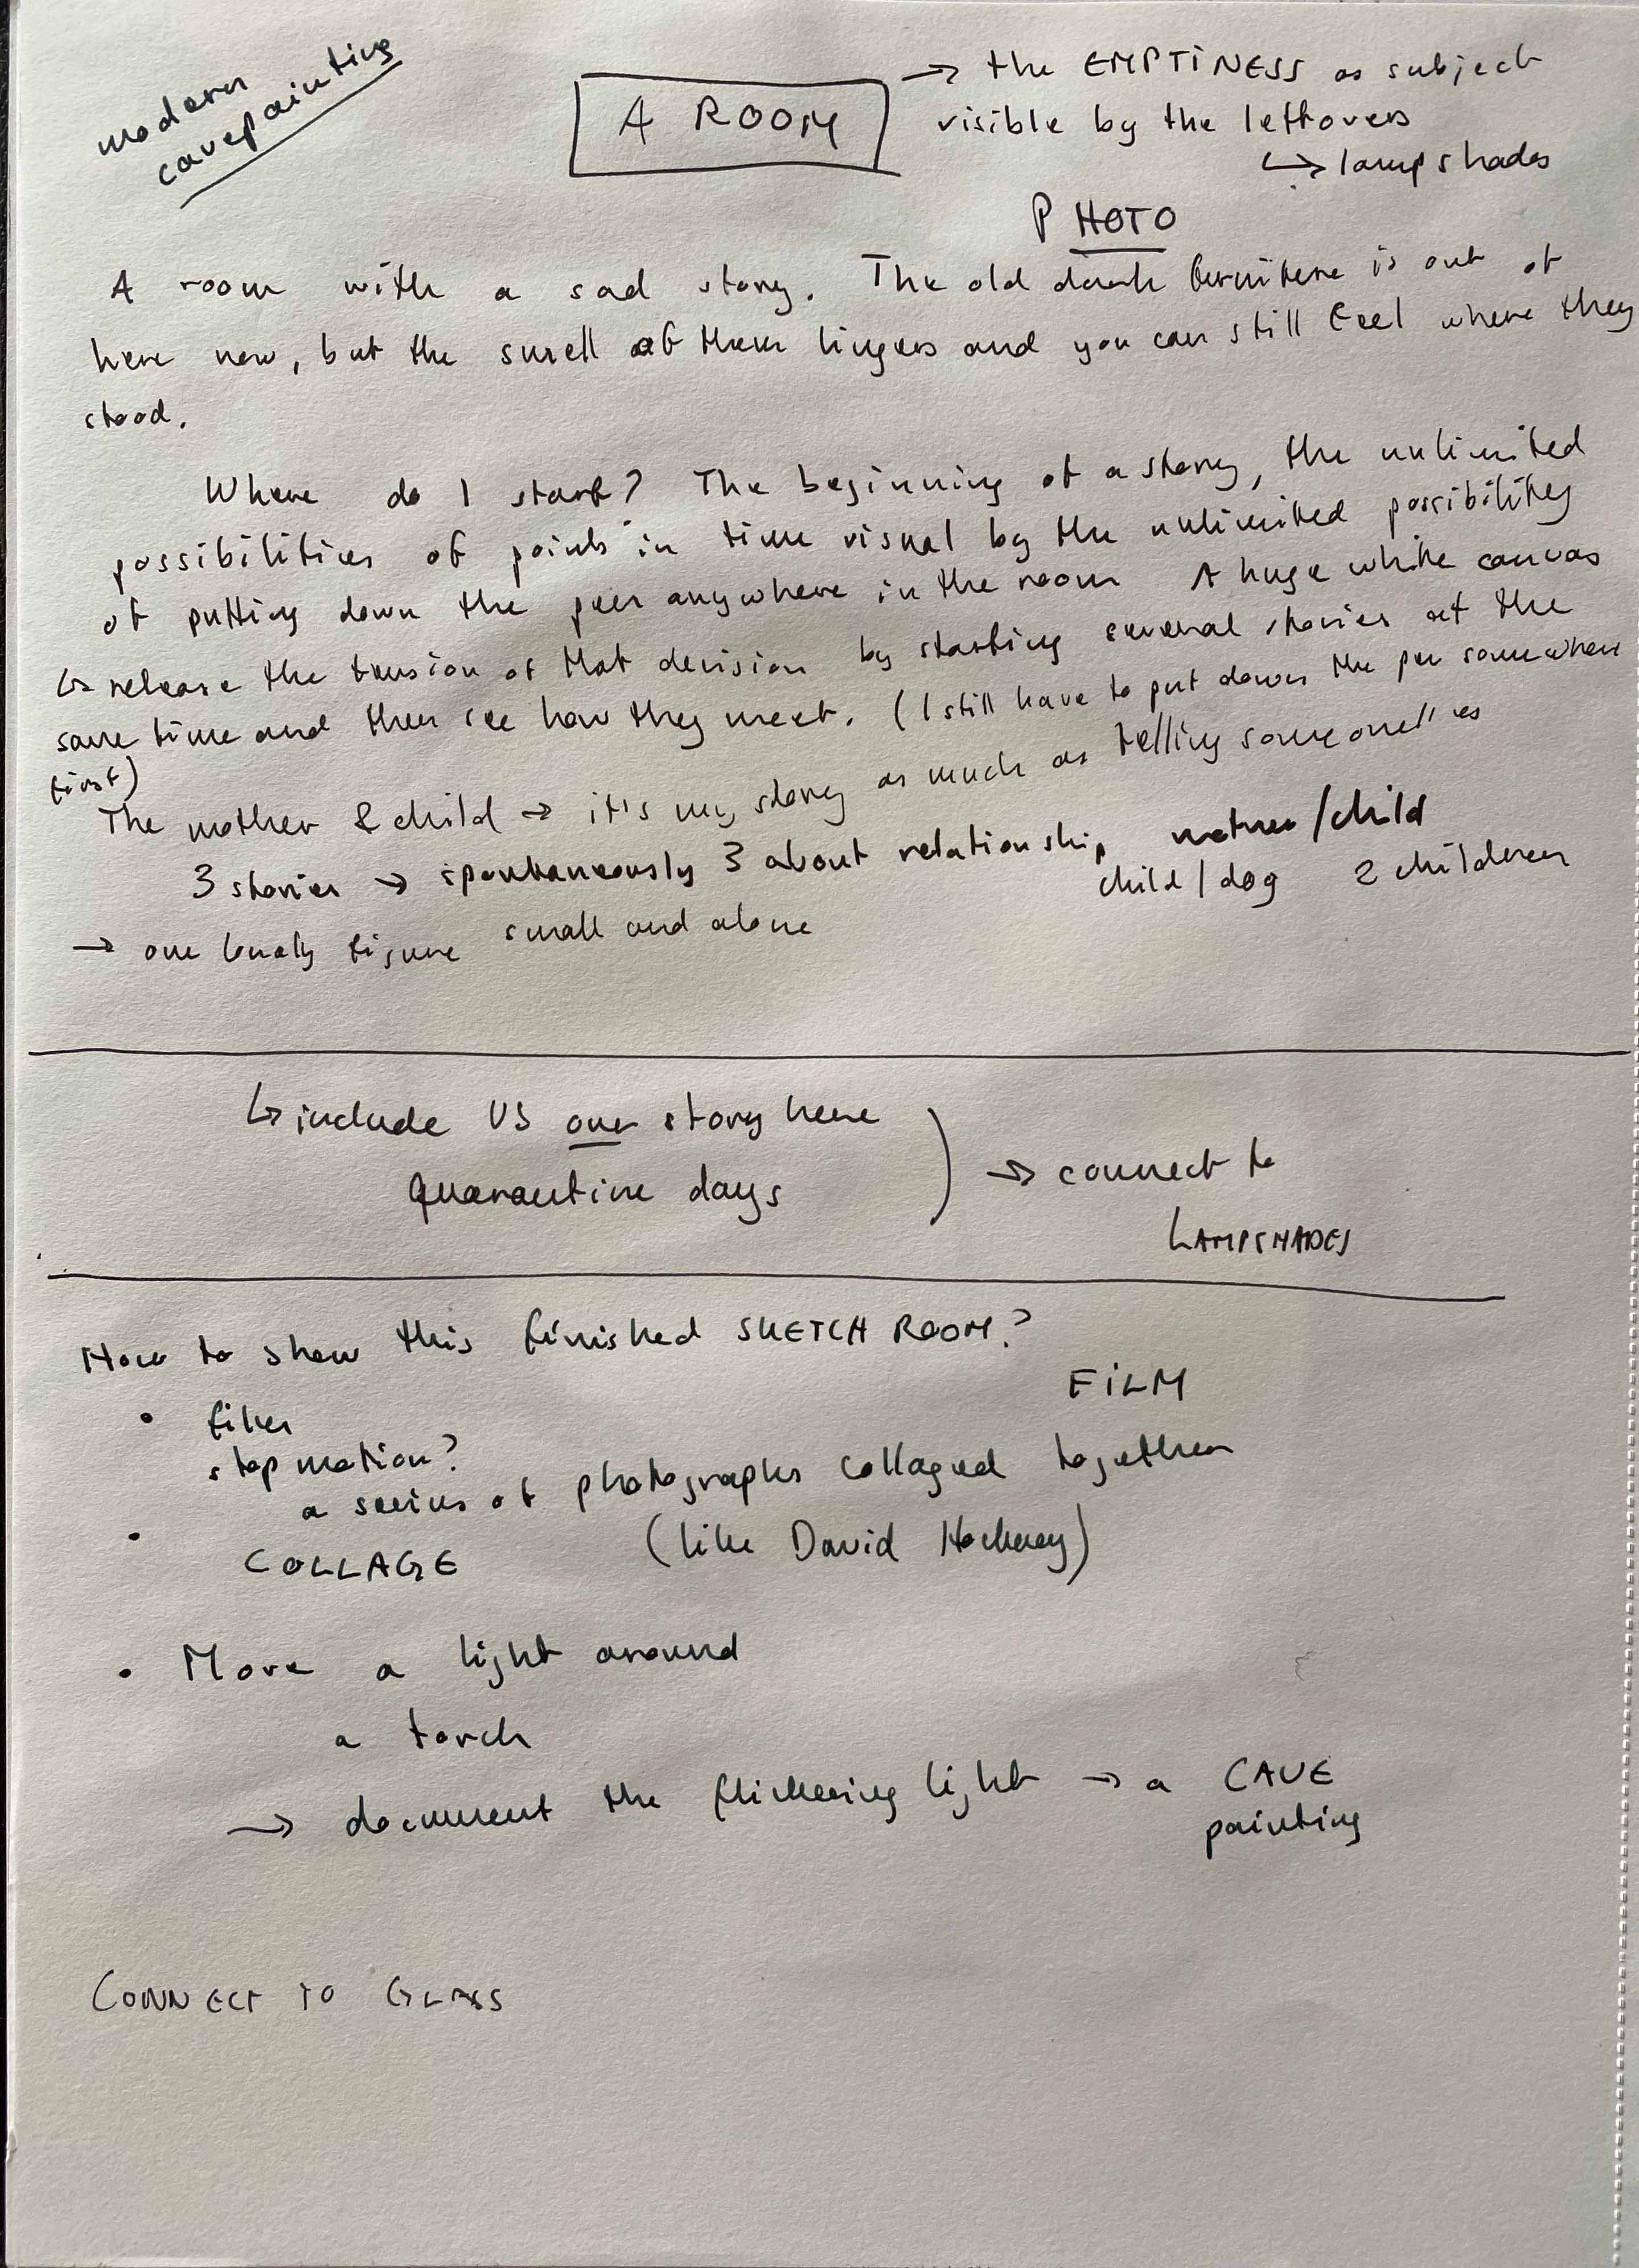 modern
cavepainting
A ROOM
→ the EMPTINESS as subject
visible by the leftovers
↳ lampshades
PHOTO
A room with a sad story. The old dark furniture is out of
here now, but the smell of them lingers and you can still feel where they
stood.
Where do I start? The beginning of a story, the unlimited
possibilities of points in time visual by the unlimited possibility
of putting down the pen anywhere in the room A huge white canvas
↳ release the tension of that decision by starting several stories at the
same time and then see how they meet. (I still have to put down the pen somewhere
first)
The mother & child → it's my story as much as telling someone else's
3 stories → spontaneously 3 about relationship mother/child
child/dog 2 children
→ one lonely figure small and alone
↳ include US our story here
quarantine days
→ connect to
LAMPSHADES
How to show this finished SKETCH ROOM?
FILM
• film
stop motion?
a series of photographs collaged together
• COLLAGE (like David Hockney)
• Move a light around
a torch
→ document the flickering light → a CAVE
painting
CONNECT TO GLASS